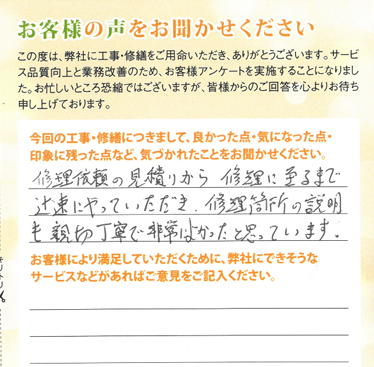 お客様の声をお聞かせください
この度は、弊社に工事・修繕をご用命いただき、ありがとうございます。サービ
ス品質向上と業務改善のため、お客様アンケートを実施することになりまし
た。お忙しいところ恐縮ではございますが、皆様からのご回答を心よりお待ち
申し上げております。
今回の工事・修繕につきまして、良かった点・気になった点・
印象に残った点など、気づかれたことをお聞かせください。
修理依頼の見積りから 修理に至るまで
迅速にやっていただき、修理箇所の説明
も親切丁寧で非常によかったと思っています。
お客様により満足していただくために、弊社にできそうな
サービスなどがあればご意見をご記入ください。